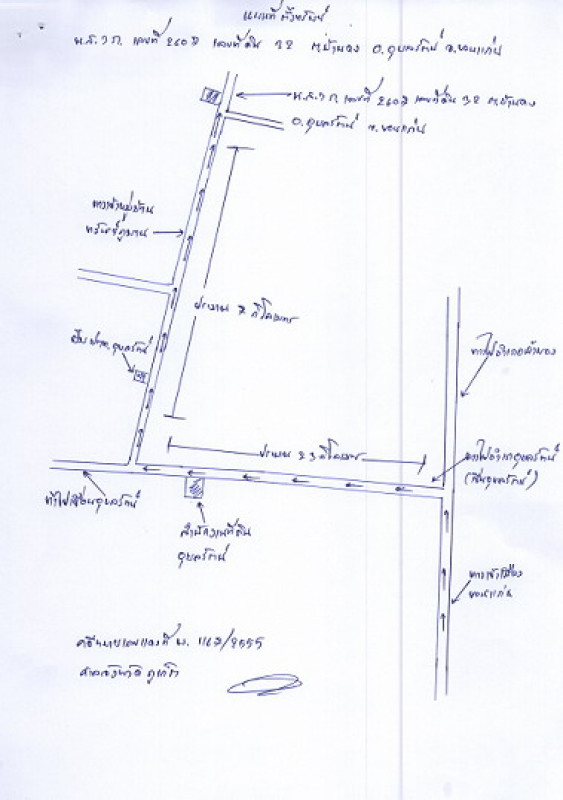 แผนที่ตั้งทรัพย์
น.ส.3 ก. เลขที่ 2602 เลขที่ดิน 32 ต.บ้านดง อ.อุบลรัตน์ จ.ขอนแก่น
น.ส.3 ก. เลขที่ 2602 เลขที่ดิน 32 ต.บ้านดง
อ.อุบลรัตน์ จ.ขอนแก่น
ทางเข้าหมู่บ้าน
ทรัพย์ภูพาน
ประมาณ 7 กิโลเมตร
ปั๊ม ปตท. อุบลรัตน์
ทางไปอำเภอ
ประมาณ 23 กิโลเมตร
ทางไปอำเภออุบลรัตน์
(เขื่อนอุบลรัตน์)
ทางไปเขื่อนอุบลรัตน์
สำนักงานที่ดิน
อุบลรัตน์
ทางเข้าเมือง
ขอนแก่น
คดีหมายเลขแดงที่ ผ. 1162/2555
ศาลจังหวัด